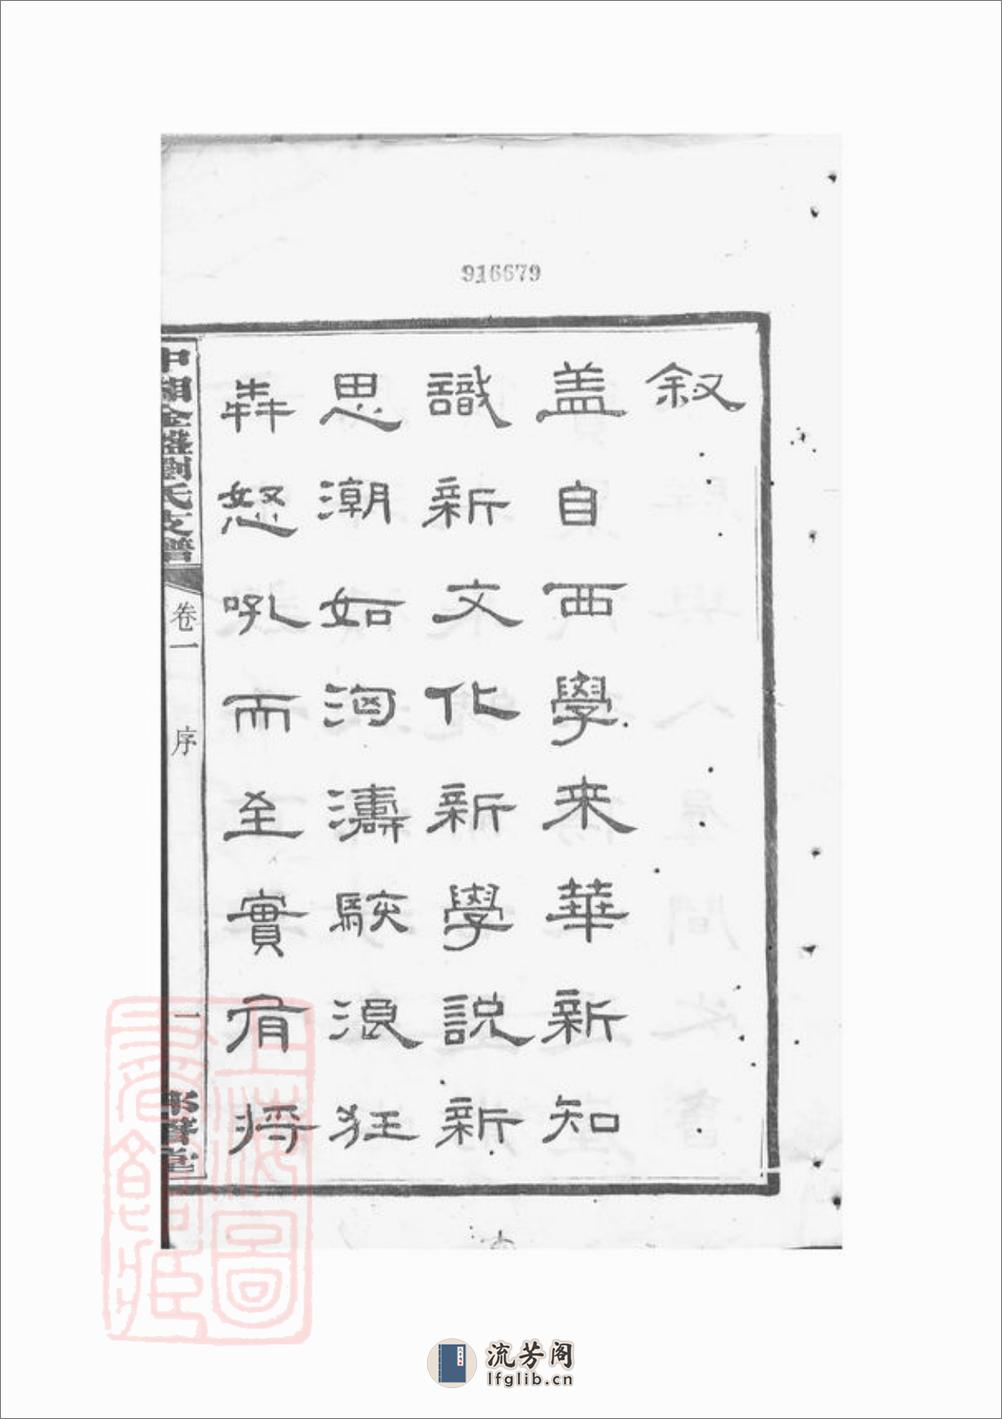 916679
敘
盖自西學来華新知
識新文化新學說新
思潮如洶濤駭浪狂
犇怒吼而至實有将
劉氏支譜
卷一
序
一
上海圖書館藏
流芳阁
lfglib.cn